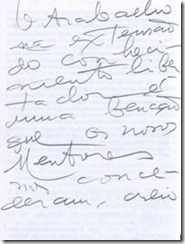 O Trabalho
na extensão
do conheci
mento liber
tador é
uma benção
que os nossos
Mentores
nos conce
deram, creio